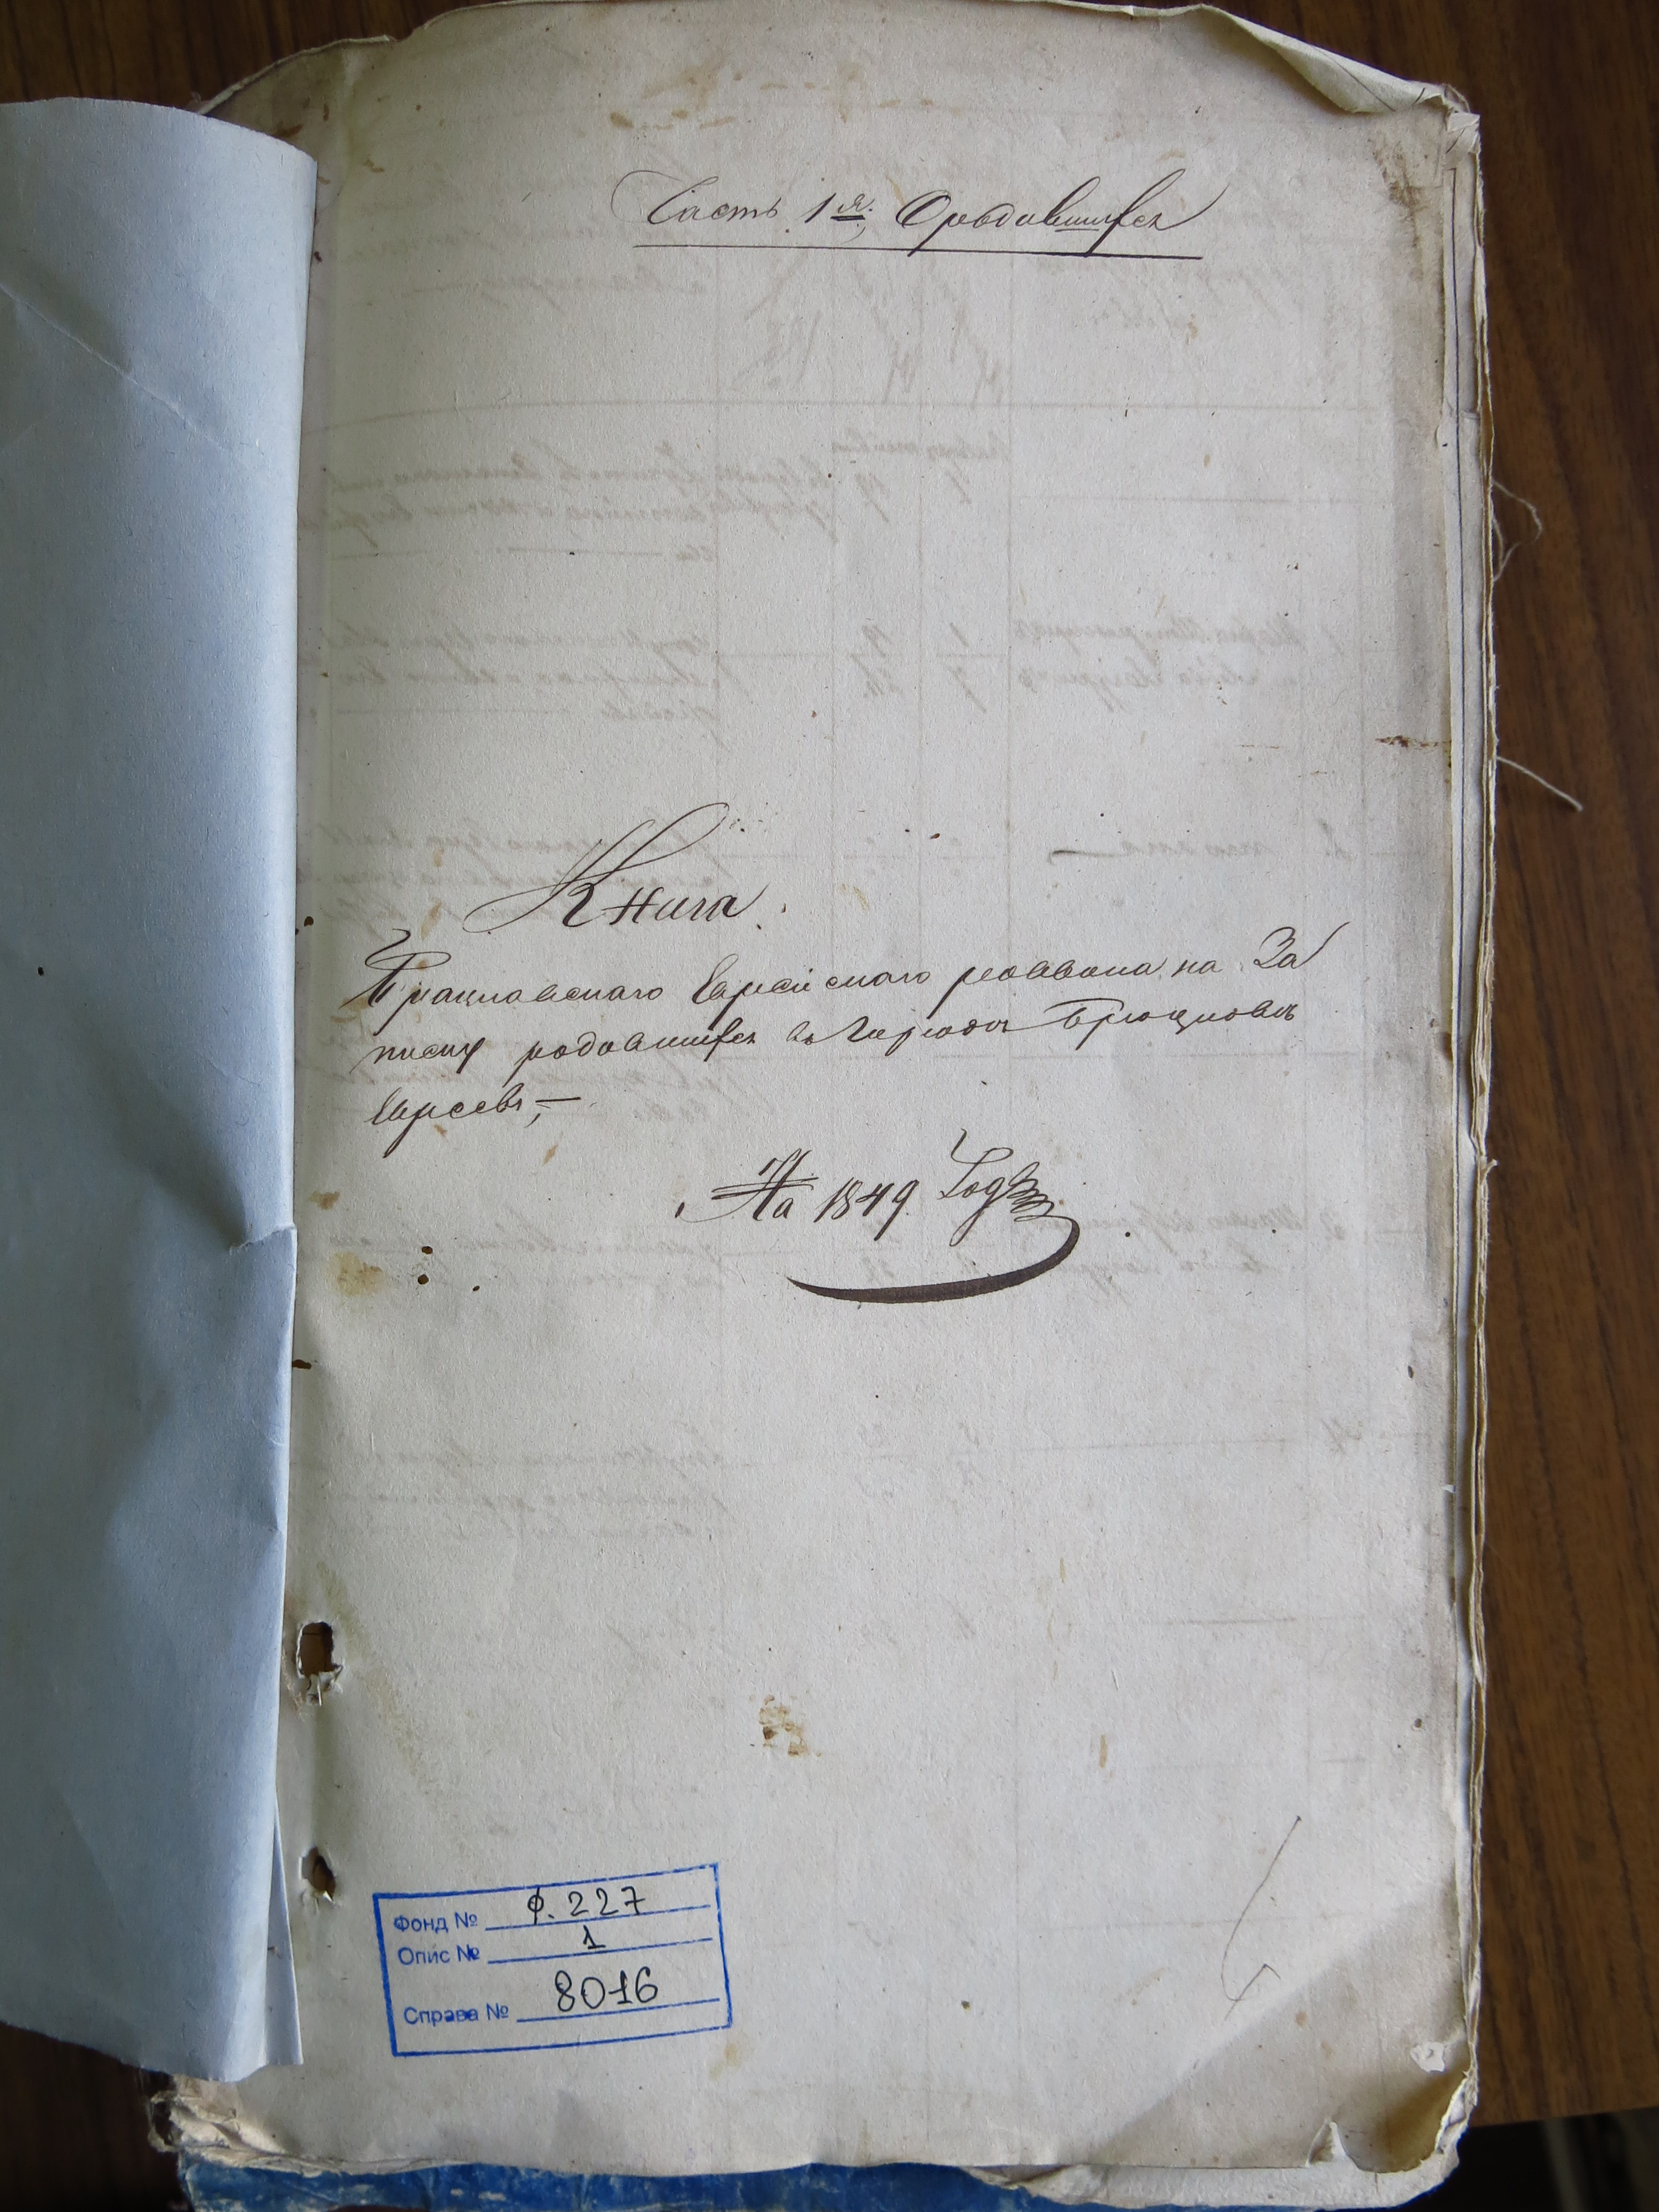 Часть 1я. О родившихся
Книга
Брацлавскаго Еврейскаго раввина на За
писку родившихся въ городе Брацлаве
Евреевъ,—
На 1849 Годъ
Фонд № ф. 227
Опис № 1
Справа № 8016